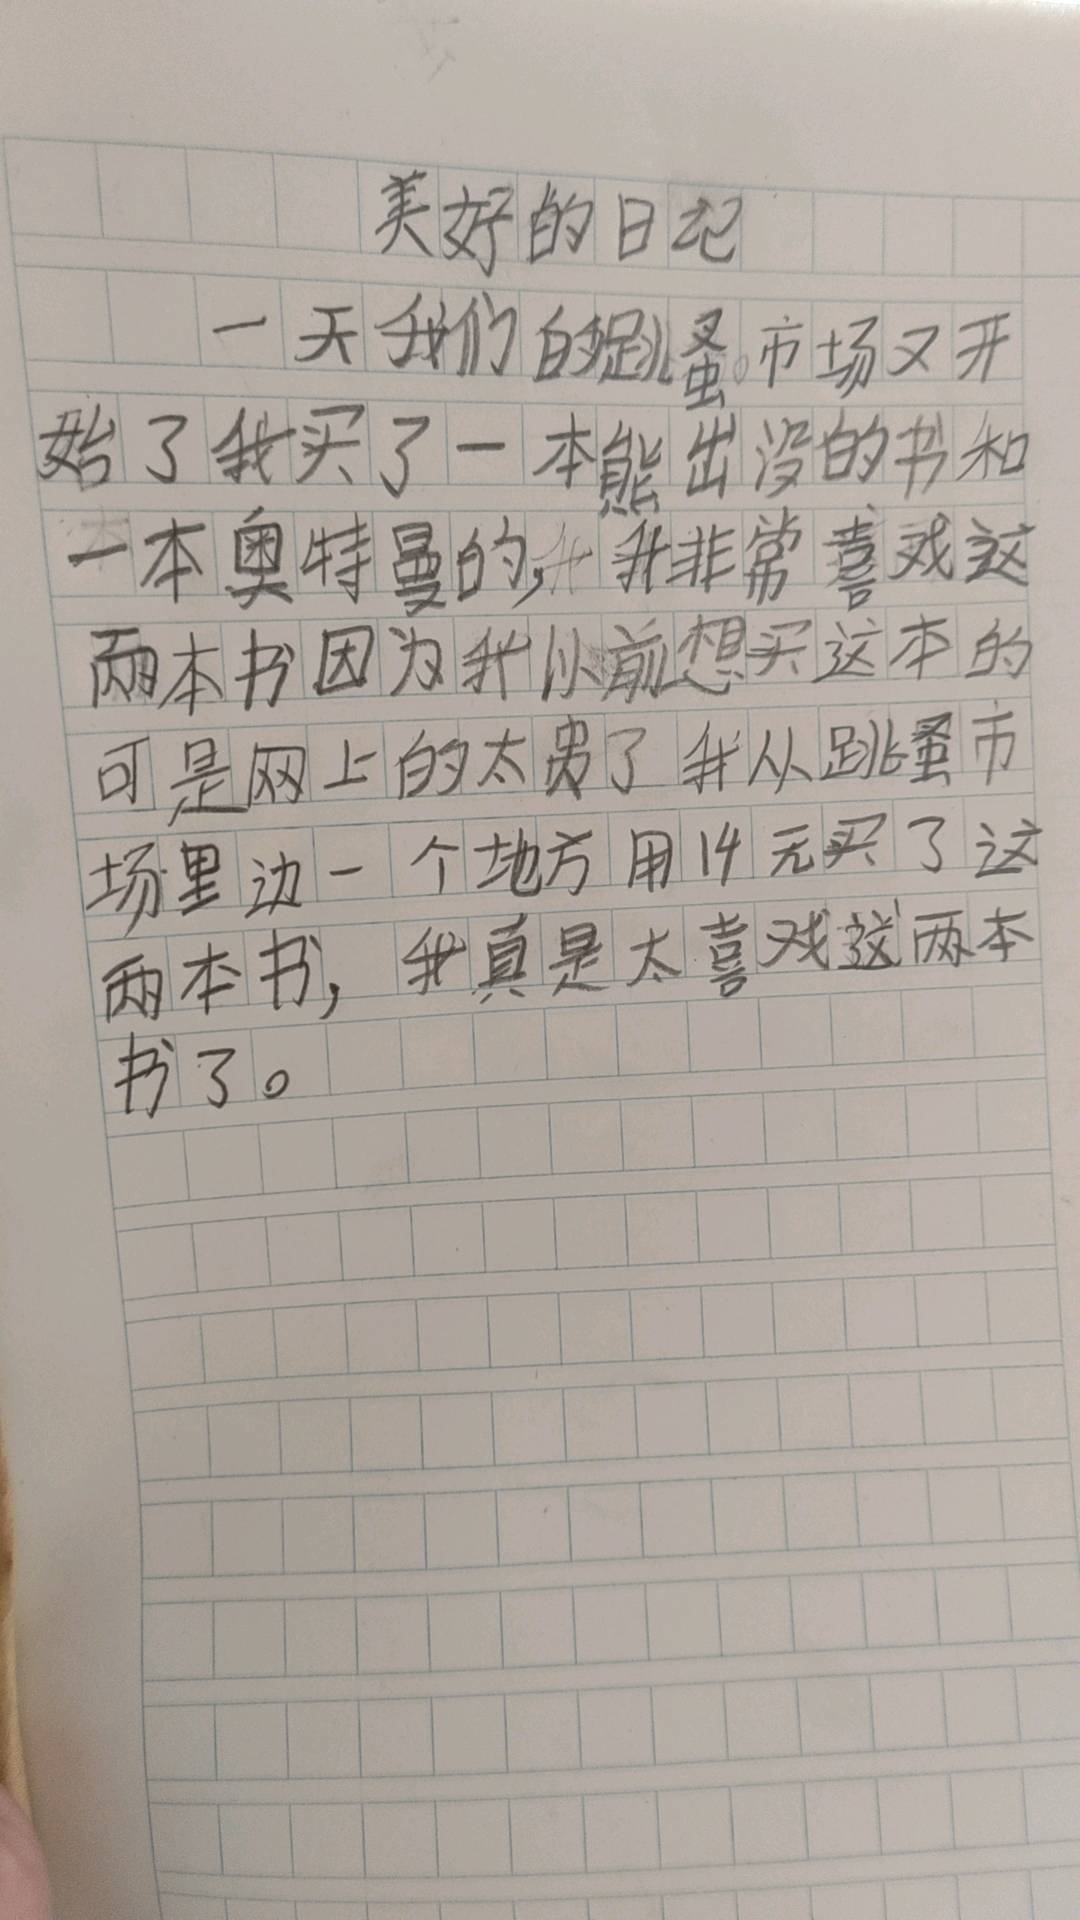 美好的日记
一天我们的跳蚤。市场又开
始了我买了一本熊出没的书和
一本奥特曼的,我非常喜戏这
两本书因为我以前想买这本的
可是网上的太贵了我从跳蚤市
场里边一个地方用14元买了这
两本书,我真是太喜戏这两本
书了。